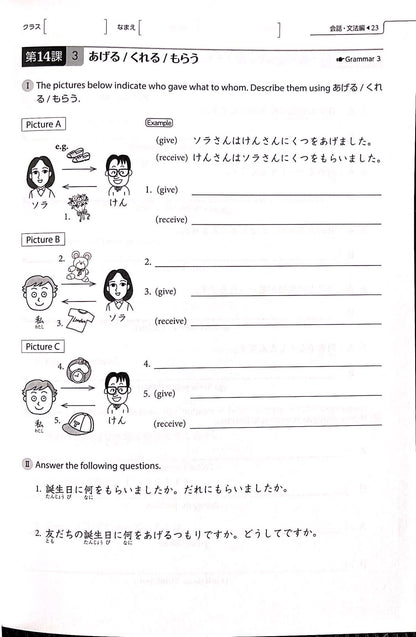 クラス [ ] なまえ [ ] 会話・文法編◀23
第14課 3 あげる / くれる / もらう ☛Grammar 3
Ⅰ The pictures below indicate who gave what to whom. Describe them using あげる / くれ
る / もらう.
Picture A
Example
e.g.
(give) ソラさんはけんさんにくつをあげました。
(receive) けんさんはソラさんにくつをもらいました。
ソラ
けん
1.
1. (give)
(receive)
Picture B
2.
2.
私
わたし
ソラ
3.
3. (give)
(receive)
Picture C
4.
4.
私
わたし
けん
5.
5. (give)
(receive)
Ⅱ Answer the following questions.
1. 誕生日に何をもらいましたか。だれにもらいましたか。
たんじょう び なに
2. 友だちの誕生日に何をあげるつもりですか。どうしてですか。
とも たんじょう び なに